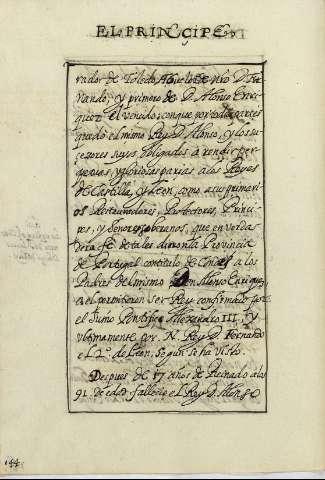 EL PRINCIPE
rador de Toledo Abuelo de nro D. Fer
nando; y primero de D. Alonso Enri
quez el venedo; conque por todas partes
quedó el mismo Rey D. Alonso, y los su
cesores suyos obligados á rendir per
petuas, y gloriosas parias a los Reyes
de Castilla, y Leon, como a sus primeri
os Restauradores, Protectores, Princi
pes, y Señores soberanos, que en verda
dera fé de tales dieron la Provincia
de Portugal con titulo de Conde a los
Padres del mismo Don Alonso Enriquez,
a el permitieron ser Rey confirmado por
el Sumo Pontifice Alexandro III, y
ultimamente por N. Rey D. Fernando
el 2º de Leon, segun se há visto.
Despues de 17 años de Reinado a los
91 de edad fallecio el Rey D. Alonso
144